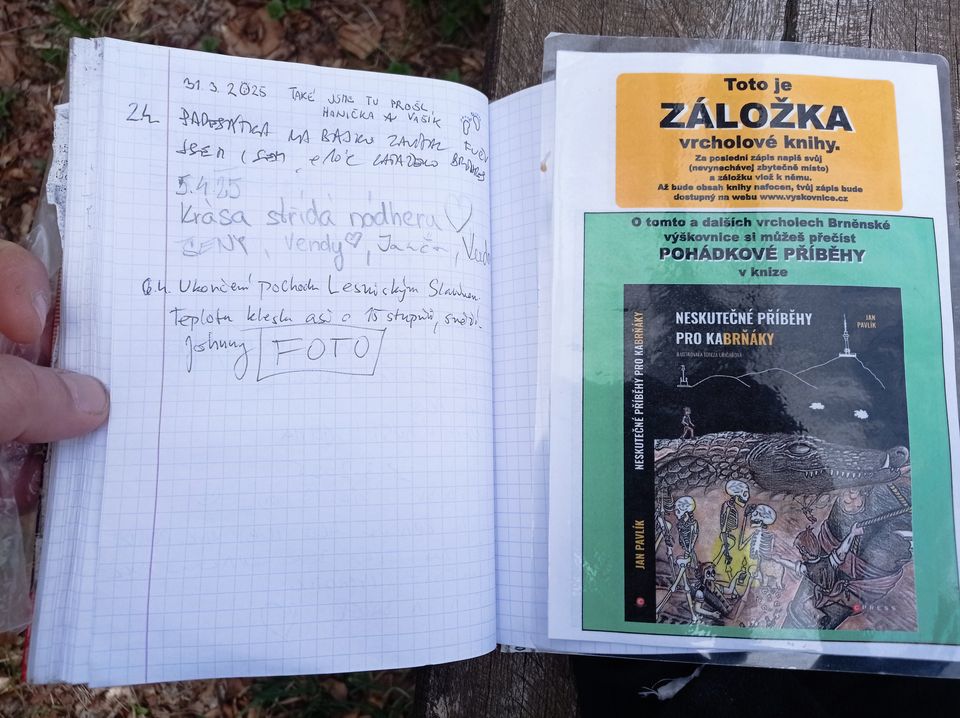 31.3.2025 TAKÉ JSME TU PROŠLI
HANIČKA A VAŠÍK
24
NA BAJKU
JSEM
5.4.25
Krása střídá nádheru ♡
Vendy ♡, Janča,
6.4. Ukončení pochodu Lesnickým Slavínem.
Teplota klesla asi o 15 stupňů, sněží.
Johnny FOTO
Toto je
ZÁLOŽKA
vrcholové knihy.
Za poslední zápis napiš svůj
(nevynechávej zbytečně místo)
a záložku vlož k němu.
Až bude obsah knihy nafocen, tvůj zápis bude
dostupný na webu www.vyskovnice.cz
O tomto a dalších vrcholech Brněnské
výškovnice si můžeš přečíst
POHÁDKOVÉ PŘÍBĚHY
v knize
NESKUTEČNÉ PŘÍBĚHY
PRO KABRŇÁKY
JAN
PAVLÍK
NESKUTEČNÉ PŘÍBĚHY PRO KABRŇÁKY
JAN PAVLÍK
CPRESS